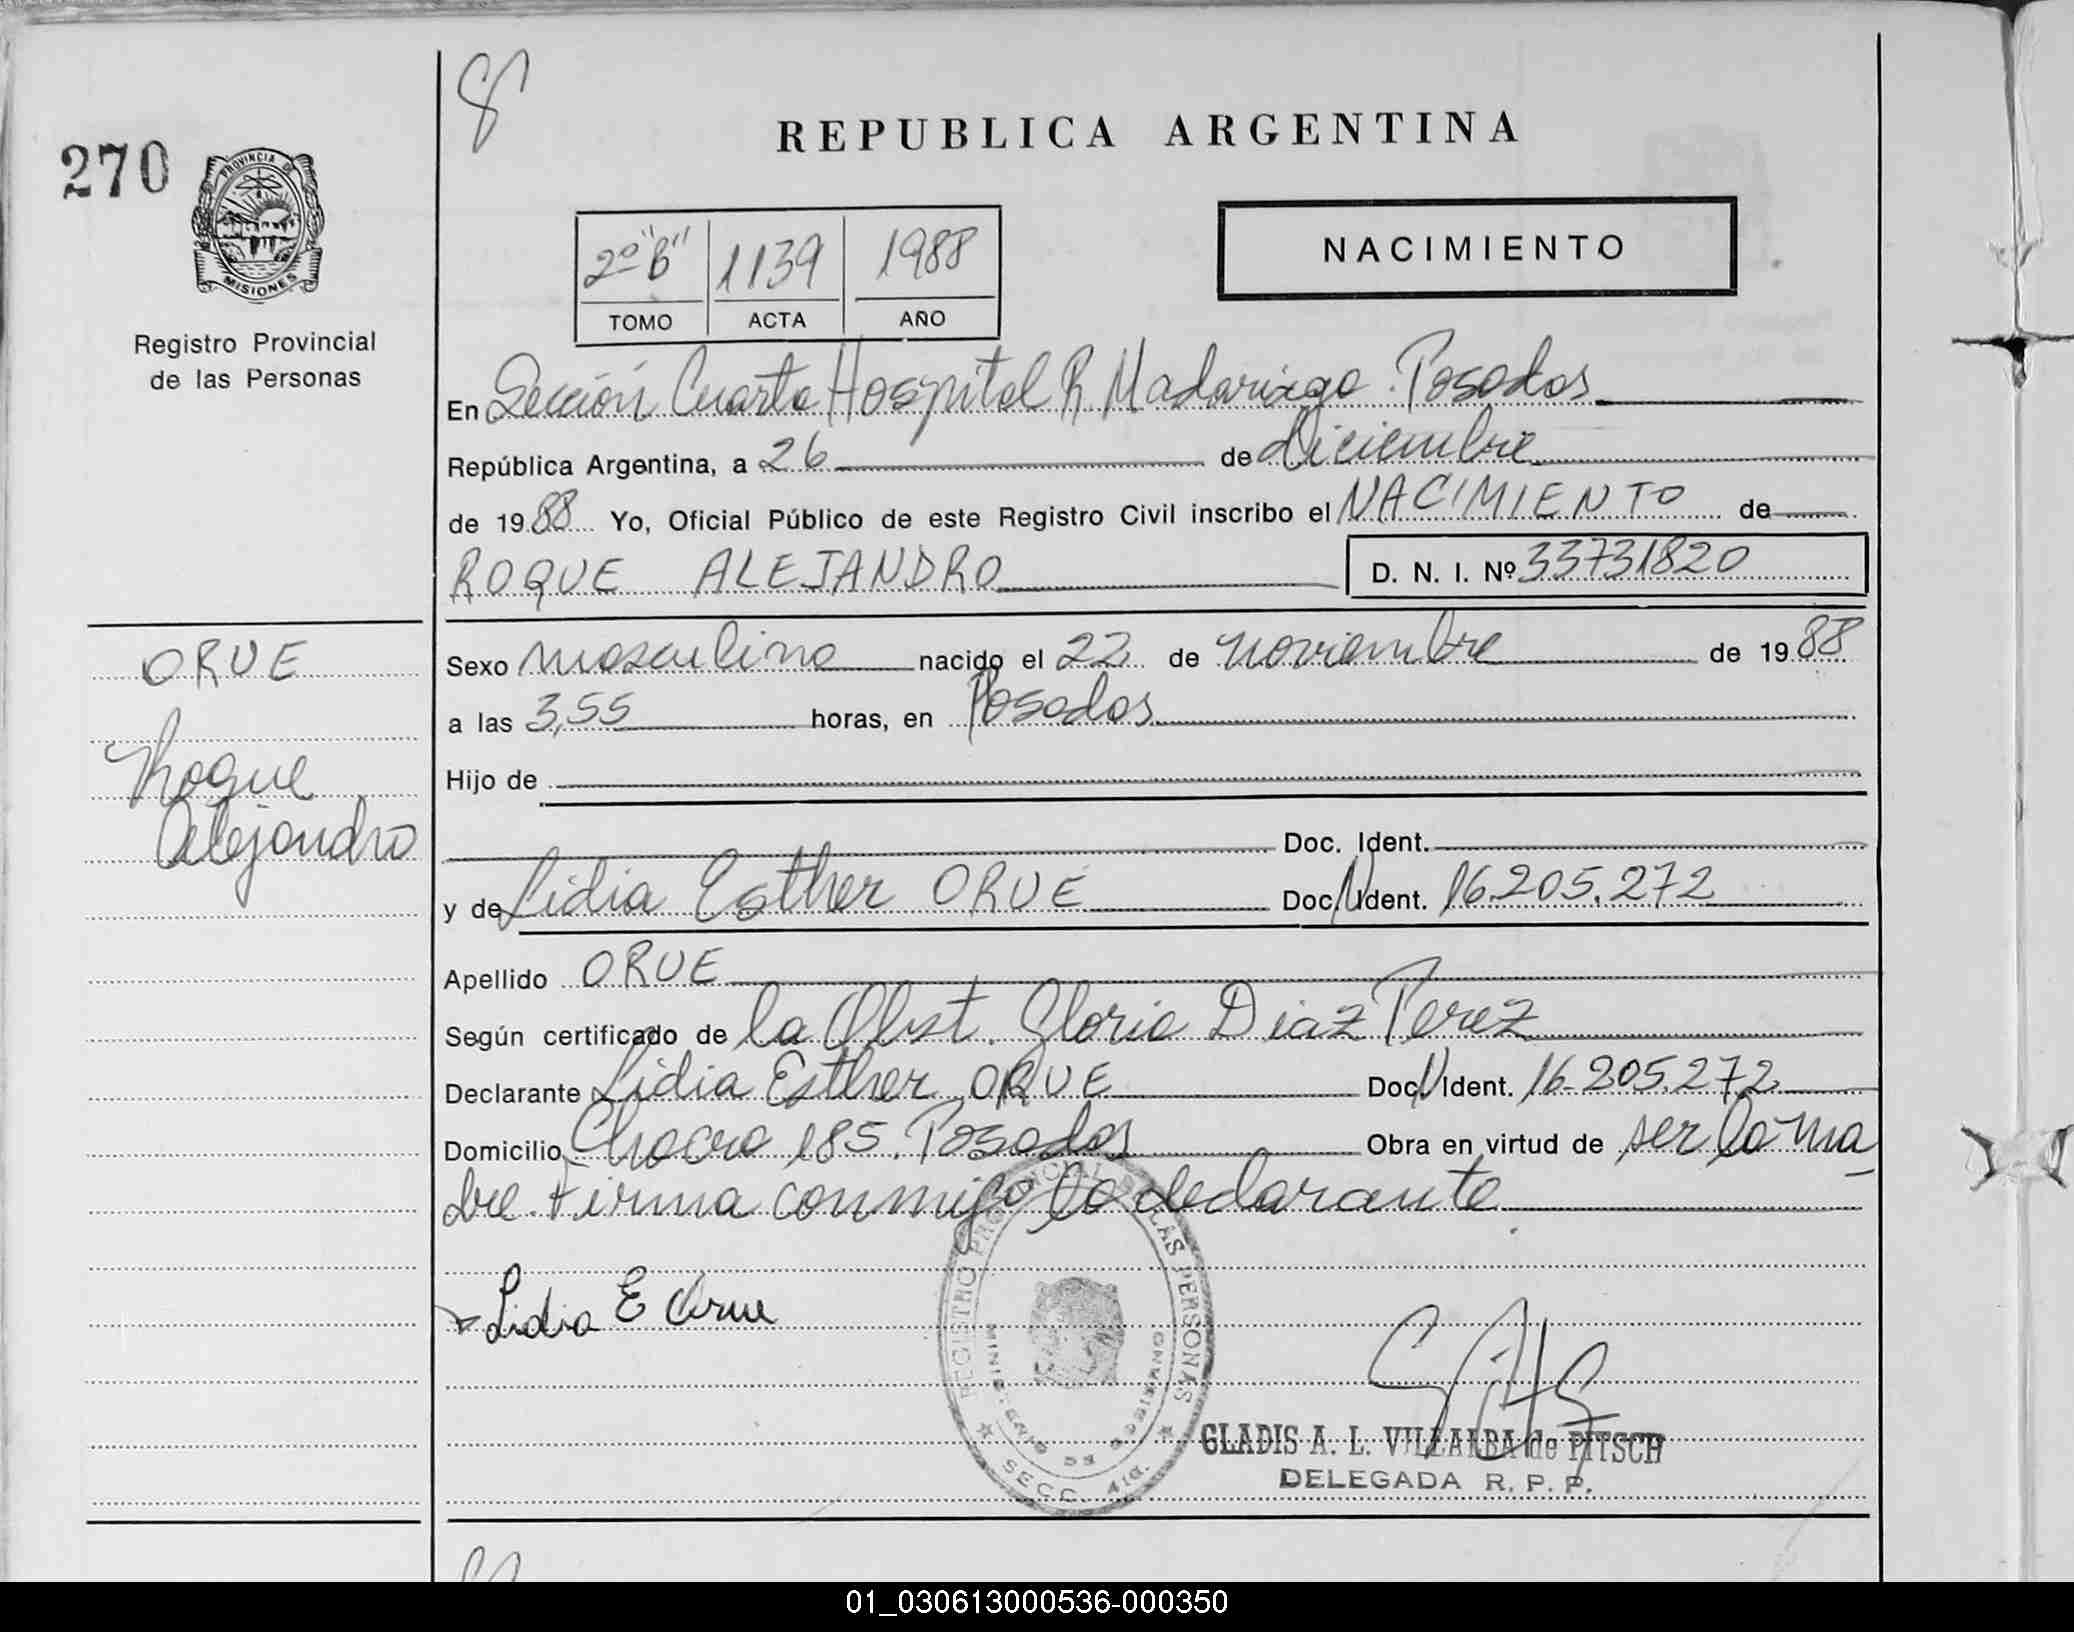 270
PROVINCIA DE
MISIONES
Registro Provincial
de las Personas
REPUBLICA ARGENTINA
2º "B" 1139 1988
TOMO ACTA AÑO
NACIMIENTO
En Sección Cuarta Hospital R. Madariaga. Posadas
República Argentina, a 26 de diciembre
de 1988 Yo, Oficial Público de este Registro Civil inscribo el NACIMIENTO de
ROQUE ALEJANDRO D. N. I. Nº 33731820
ORUE
Roque
Alejandro
Sexo masculino nacido el 22 de noviembre de 1988
a las 3,55 horas, en Posadas
Hijo de
Doc. Ident.
y de Lidia Esther ORUE Doc. Ident. 16.205.272
Apellido ORUE
Según certificado de la Obst. Gloria Diaz Perez
Declarante Lidia Esther ORUE Doc. Ident. 16.205.272
Domicilio Chacra 185. Posadas Obra en virtud de ser la ma
dre. Firma conmigo la declarante
Lidia E Orue
REGISTRO PROVINCIAL DE LAS PERSONAS
MINISTERIO DE GOBIERNO
SECC. 4ta.
GLADIS A. L. VILLALBA de PITSCH
DELEGADA R. P. P.
01_030613000536-000350